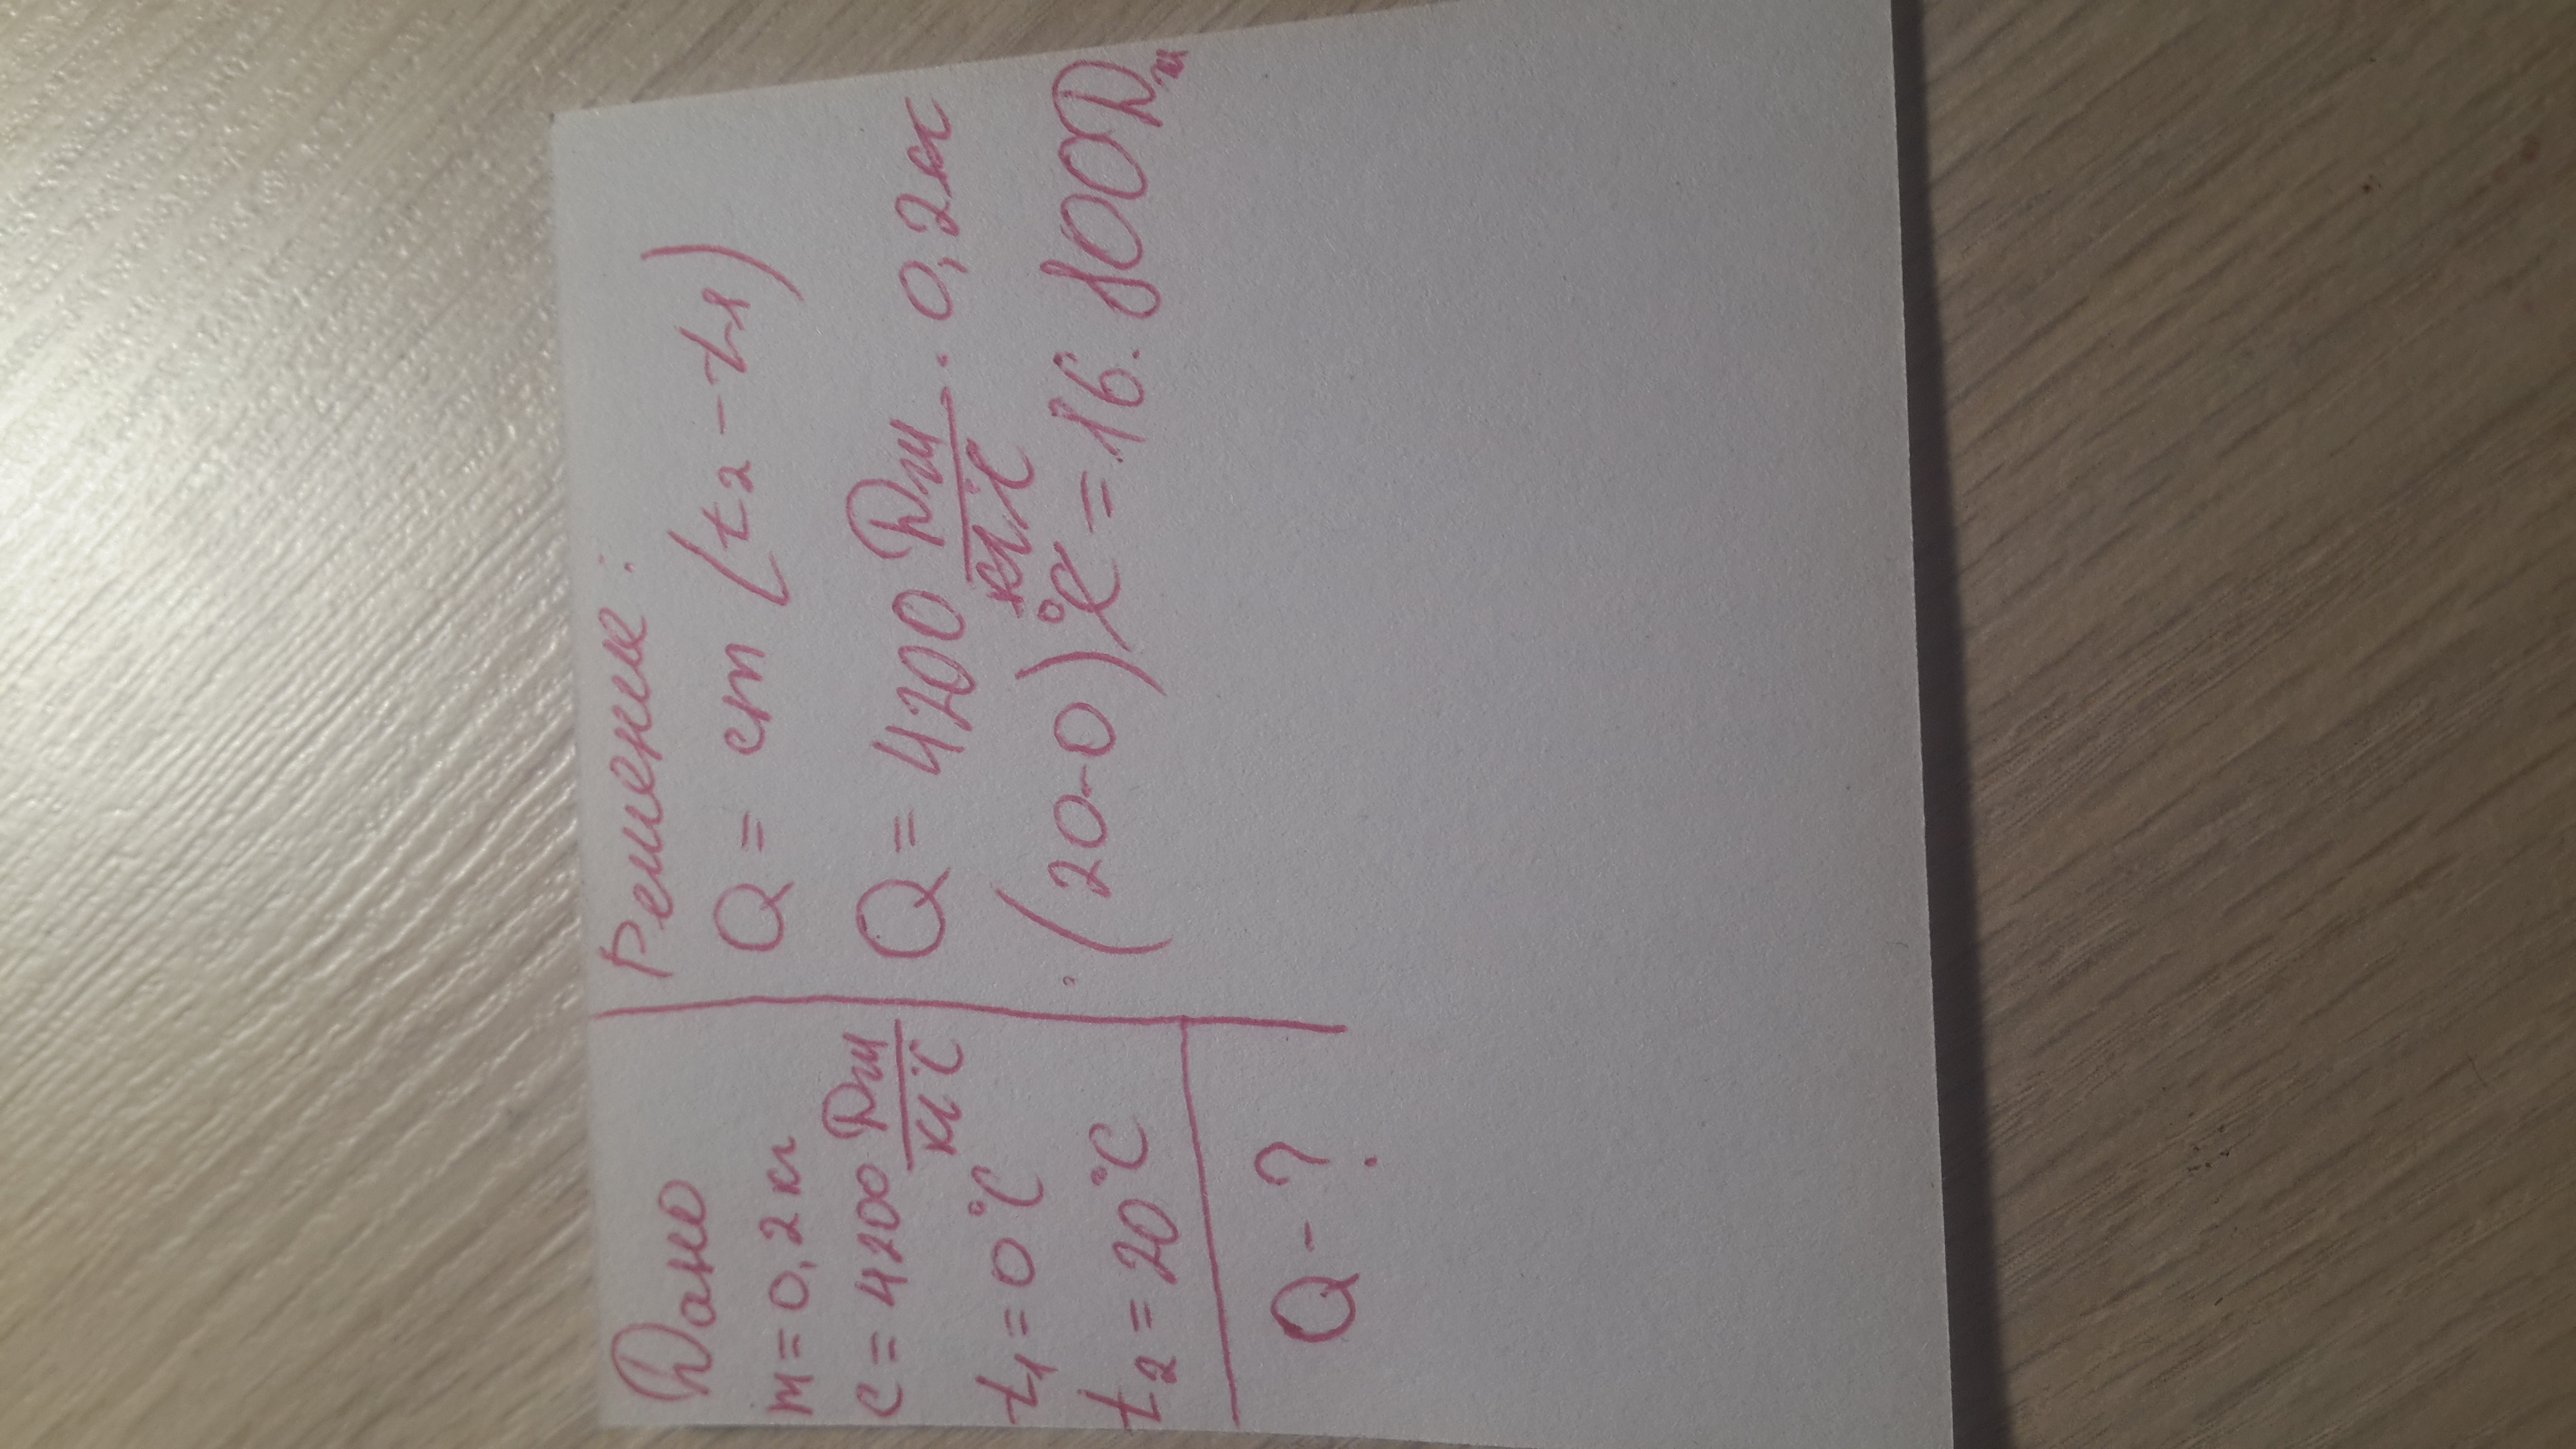 Дано
m = 0,2 кг
c = 4200 Дж/кг°С
t₁ = 0°С
t₂ = 20°С
Q - ?
Решение:
Q = cm (t₂ - t₁)
Q = 4200 Дж/кг°С · 0,2 кг
· (20-0)°С = 16.800 Дж